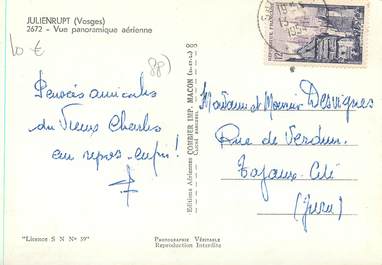 JULIENRUPT (Vosges)
2672 - Vue panoramique aérienne
10 €
88)
Pensées amicales
du Vieux Charles
en repos - enfin !
Madame et Monsieur Desvignes
Rue de Verdun
Tavaux-Cité
(Jura)
Editions Aériennes COMBIER IMP. MACON
"Licence S N Nº 39"
PHOTOGRAPHIE VÉRITABLE
Reproduction Interdite